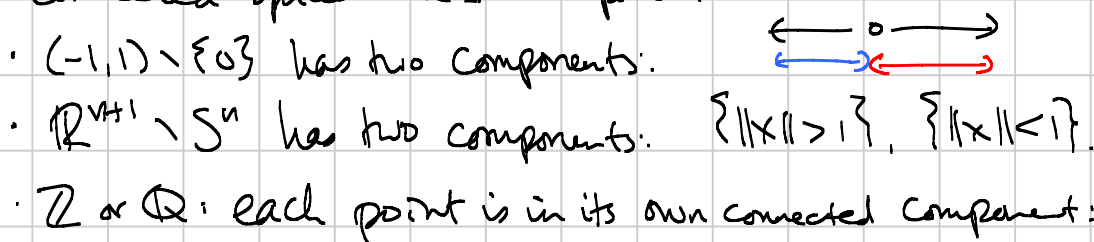 · (-1,1) \ {0} has two components:
· ℝⁿ⁺¹ \ Sⁿ has two components: {||x||>1}, {||x||<1}.
· ℤ or ℚ: each point is in its own connected component: